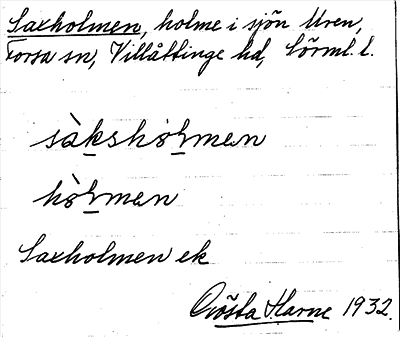 Saxholmen, holme i sjön Uren,
Forsa sn, Villåttinge hd, Sörml. l.
sàkshòlmen
hòlmen
Saxholmen ek
Gösta Harne 1932.